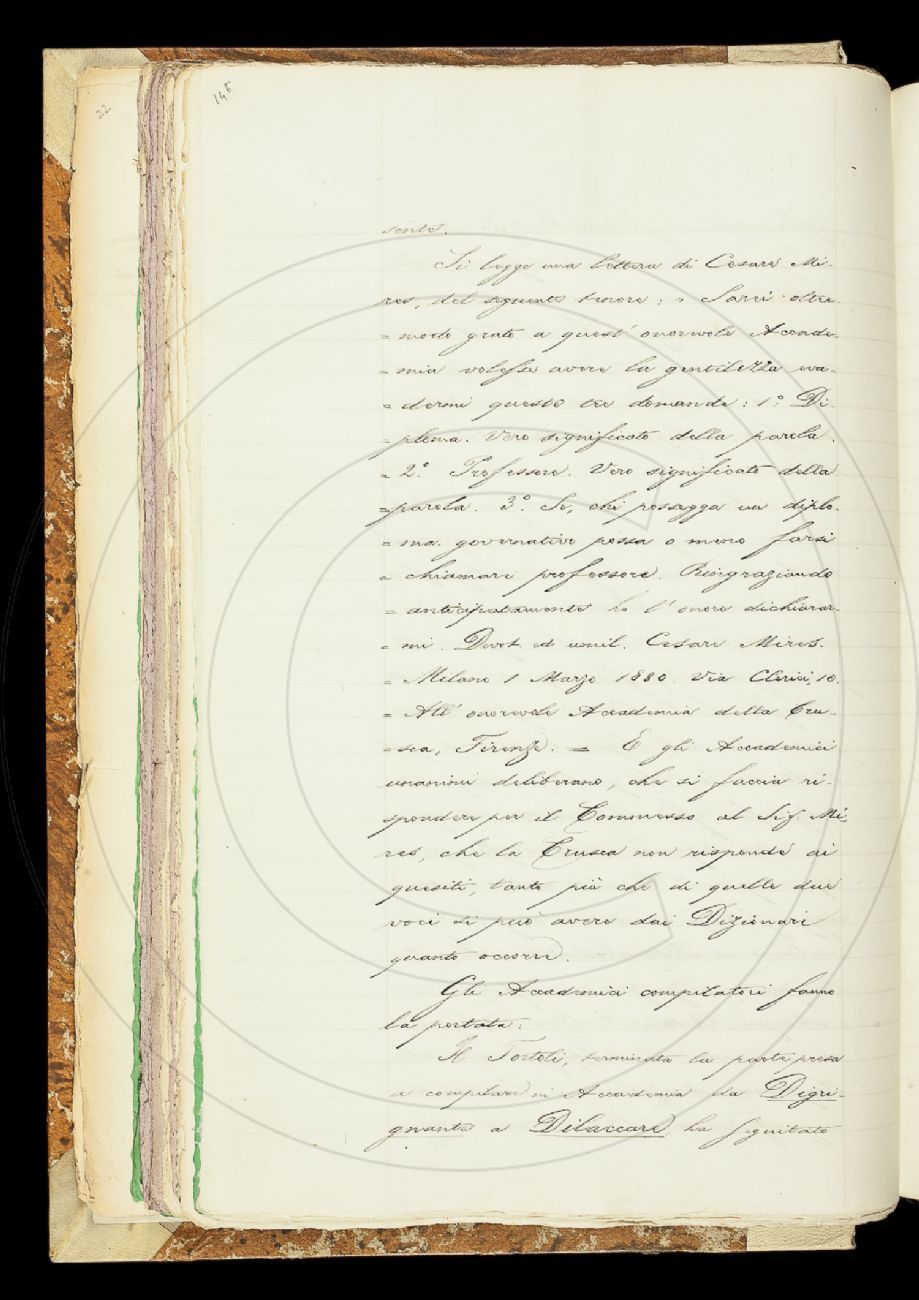 22
145
sente.
Si legge una lettera di Cesare Mi-
res, del seguente tenore: » Sarei oltre-
= modo grato a quest' onorevole Accade-
= mia volesse avere la gentilezza eva-
= dermi queste tre domande: 1.º Di-
= ploma. Vero significato della parola.
= 2.º Professore. Vero significato della
= parola. 3.º Se, chi possegga un diplo-
= ma governativo possa o meno farsi
= chiamare professore. Ringraziando
= anticipatamente ho l'onore dichiarar-
= mi. Devot. ed umil. Cesare Mires.
= Milano 1 Marzo 1880. Via Clerici, 10.
= All' onorevole Accademia della Cru-
= sca, Firenze. = E gli Accademici
unanimi deliberano, che si faccia ri-
spondere per il Commesso al Sig. Mi-
res, che la Crusca non risponde ai
quesiti, tanto più che di quelle due
voci si può avere dai Dizionari
quanto occorre.
Gli Accademici compilatori fanno
la portata:
Il Tortoli, terminata la parte presa
a compilare in Accademia da Digri-
gnante a Dilaccare, ha seguitato